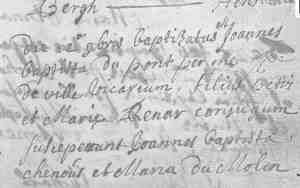 Bergh
Die 12a 9bris baptizatus est Joannes
baptista du pont per me
de ville vicarium, filius
et Mariæ Renar conjugum
susceperunt Joannes baptista
chenois et Maria du Molin